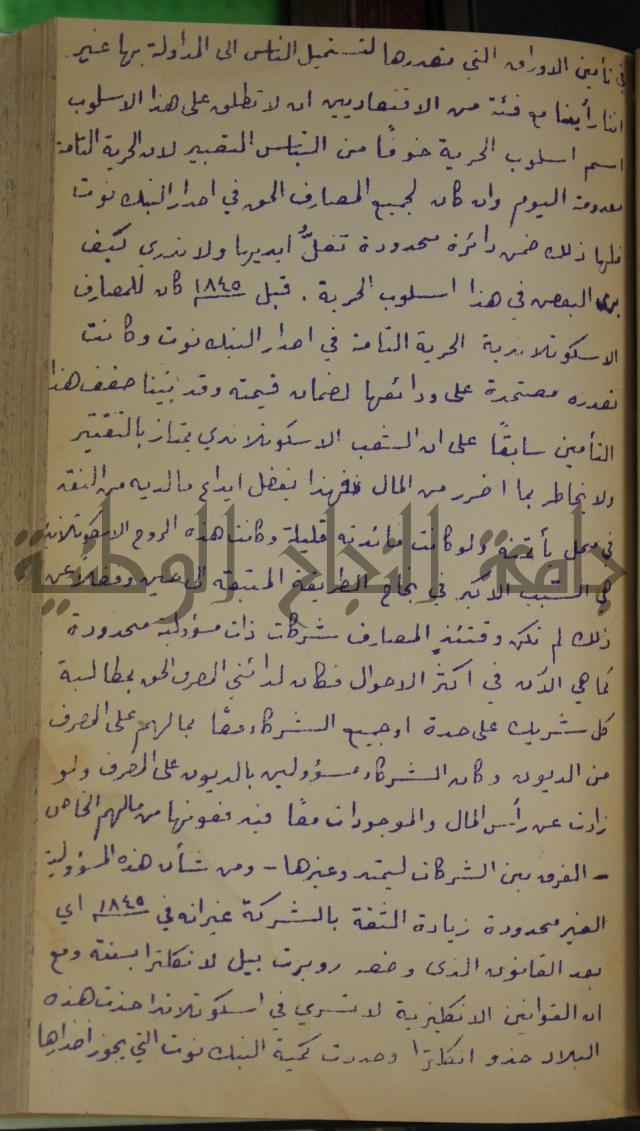 في تأمين الاوراق التي تصدرها لتستميل الناس الى المداولة بها غير
اننا رأينا مع فئة من الاقتصاديين ان لا تطلق على هذا الاسلوب
اسم اسلوب الحرية خوفًا من التباس التعبير لان الحرية التامة
معدومة اليوم وان كان لجميع المصارف الحق في اصدار البنك نوت
فلها ذلك ضمن دائرة محدودة تغلُّ ايديها ولا ندري كيف
يرى البعض في هذا اسلوب الحرية . قبل ١٨٤٥ كان للمصارف
الاسكوتلاندية الحرية التامة في اصدار البنك نوت وكانت
تصدره معتمدة على ودائعها لضمان قيمته وقد بيّنا ضعف هذا
التأمين سابقًا على ان الشعب الاسكوتلاندي يمتاز بالتقتير
ولا يخاطر بما ادخر من المال فهذا يفضل ايداع ما لديه من النقد
في محل يأتمنه ولو كانت فائدته قليلة وكانت هذه الروح الاسكوتلاندية
هي السبب الاكبر في نجاح الطريقة المتبعة الى حين وفضلًا عن
ذلك لم تكن وقتئذٍ المصارف شركات ذات مسؤولية محدودة
كما هي الآن في اكثر الاحوال فكان لدائني المصرف الحق بمطالبة
كل شريك على حدة او جميع الشركاء معًا بما لهم على المصرف
من الديون وكان الشركاء مسؤولين بالديون على المصرف ولو
زادت عن رأس المال والموجودات معًا فيدفعونها من مالهم الخاص
– الفرق بين الشركات ليمتد وغيرها – ومن شأن هذه المسؤولية
الغير محدودة زيادة الثقة بالشركة غير انه في ١٨٤٥ اي
بعد القانون الذي وضعه روبرت بيل لانكلترا بسنة ومع
ان القوانين الانكليزية لا تسري في اسكوتلاندا حذت هذه
البلاد حذو انكلترا وحددت كمية البنك نوت التي يجوز اصدارها
جامعة النجاح الوطنية